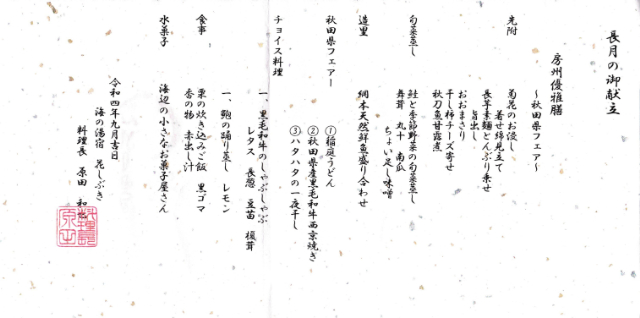 長月の御献立
房州優雅膳
～秋田県フェア～
先附
菊花のお浸し
着せ綿見立て
長芋素麺とんぶり乗せ
旨出し
おおまさり
干し柿チーズ寄せ
秋刀魚甘露煮
旬菜蒸し
鮭と季節野菜の旬菜蒸し
舞茸 丸十 南瓜
ちょい足し味噌
造里
網本天然鮮魚盛り合わせ
秋田県フェアー
①稲庭うどん
②秋田県産黒毛和牛西京焼き
③ハタハタの一夜干し
チョイス料理
一、黒毛和牛のしゃぶしゃぶ
レタス 長葱 豆苗 榎茸
一、鮑の踊り蒸し レモン
食事
栗の炊き込みご飯 黒ゴマ
香の物 赤出し汁
水菓子
海辺の小さなお菓子屋さん
令和四年九月吉日
海の湯宿 花しぶき
料理長 原田 和